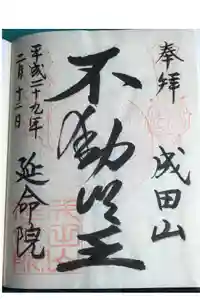 奉拝
成田山
不動明王
平成二十九年
二月十二日
延命院